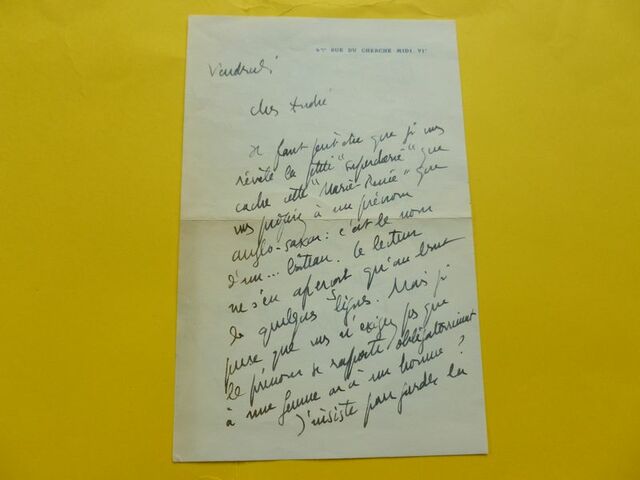 RUE DU CHERCHE MIDI VIᵉ
Vendredi
Cher André
Il faut peut-être que je vous
révèle la petite "supercherie" que
cache cette "Marie-Renée" que
vous préférez à un prénom
anglo-saxon : c'est le nom
d'un... bateau. Le lecteur
ne s'en aperçoit qu'au bout
de quelques lignes. Mais je
pense que vous n'exigez pas que
le prénom se rapporte obligatoirement
à une femme ou à un homme ?
J'insiste pour garder la